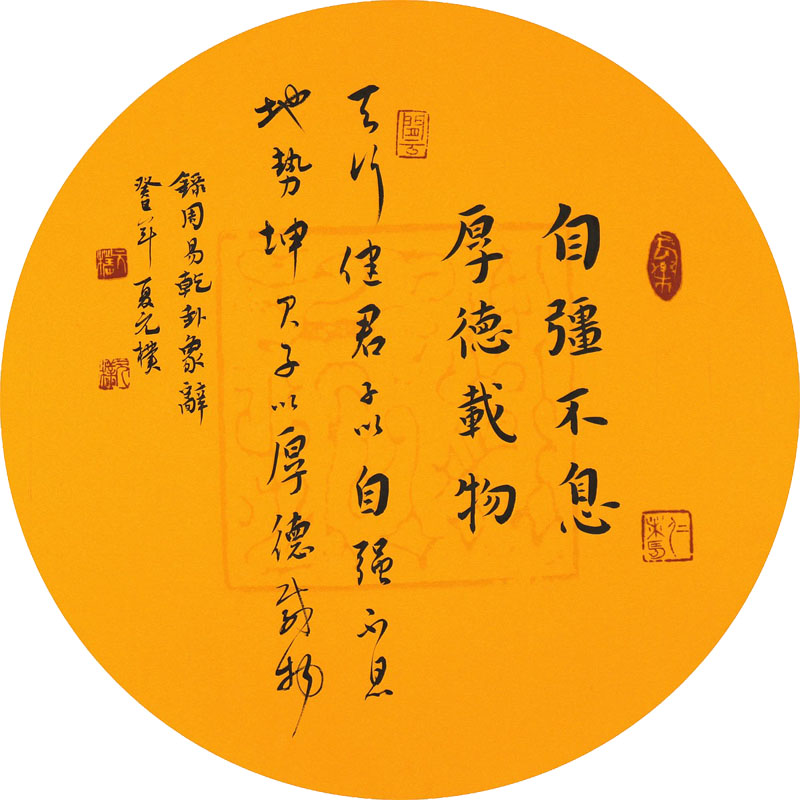 自彊不息
厚德載物
天行健君子以自强不息
地勢坤君子以厚德載物
錄周易乾卦象辭
癸巳年 夏元樸